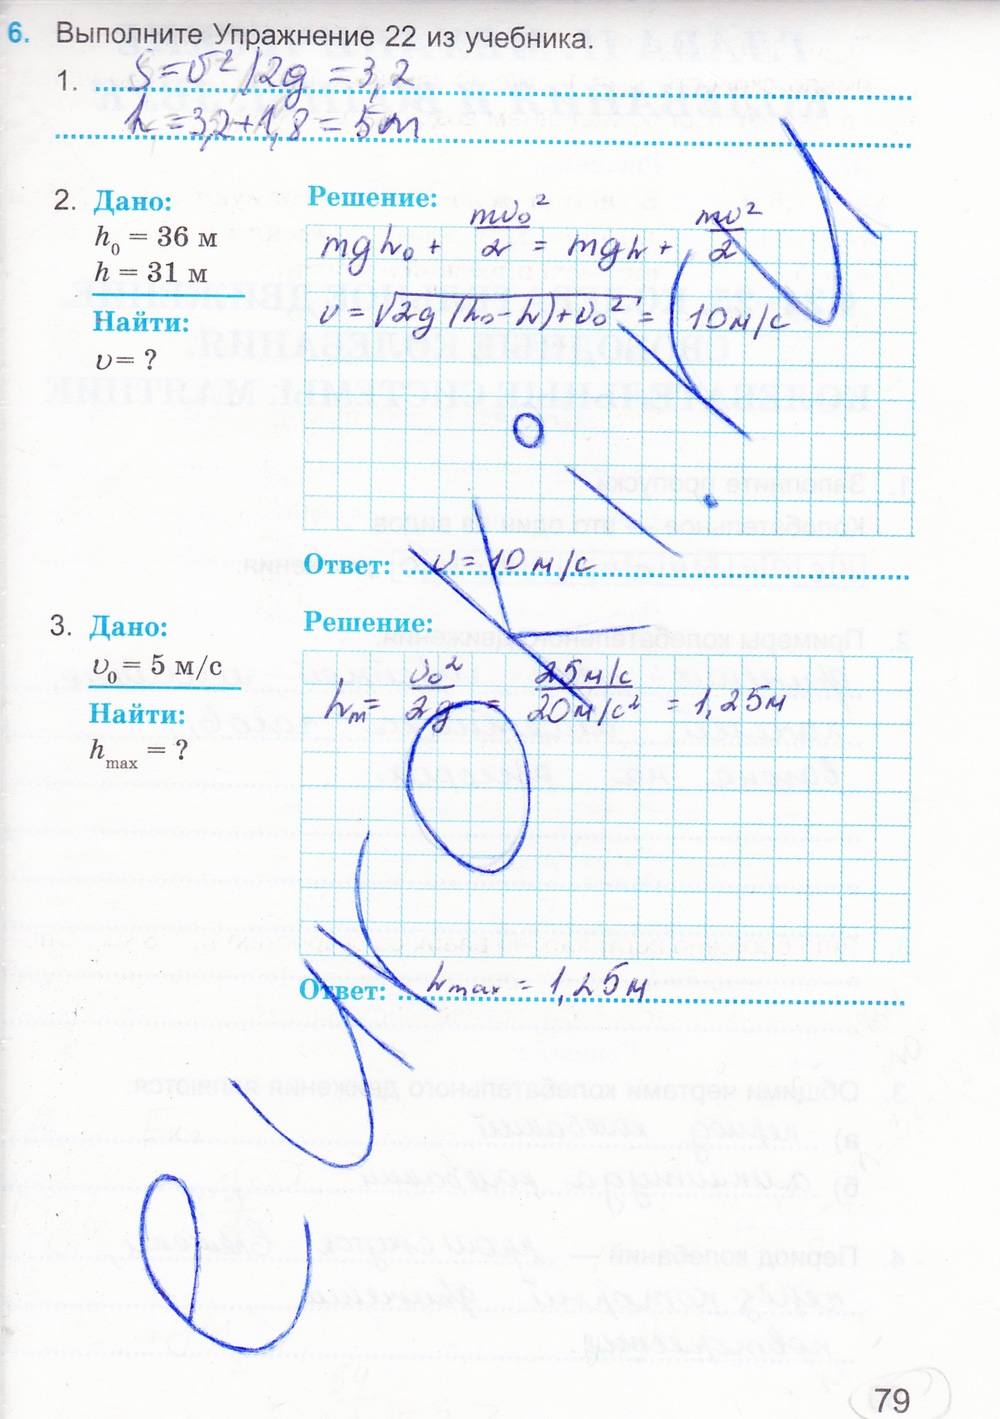 6. Выполните Упражнение 22 из учебника.
1. S = v² / 2g = 3,2
h = 3,2 + 1,8 = 5 м
2. Дано:
h₀ = 36 м
h = 31 м
Найти:
υ = ?
Решение:
mgh₀ + mv₀²/2 = mgh + mv²/2
v = √2g(h₀ - h) + v₀² = 10 м/с
Ответ: v = 10 м/с
3. Дано:
υ₀ = 5 м/с
Найти:
hmax = ?
Решение:
hm = v₀²/2g = 25 м/с / 20 м/с² = 1,25 м
Ответ: hmax = 1,25 м
79